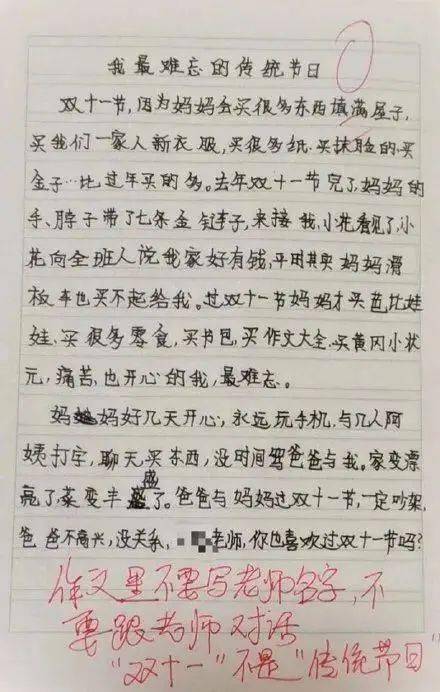 我最难忘的传统节日
双十一节,因为妈妈会买很多东西填满屋子,
买我们一家人新衣服,买很多纸.买抹脸的.买
金子…比过年买的多。去年双十一节完了,妈妈的
手、脖子带了七条金链子,来接我,小花看见了,小
花向全班人说我家好有钱,平时其实妈妈滑
板车也买不起给我。过双十一节妈妈才买芭比娃
娃、买很多零食,买书包,买作文大全、买黄冈小状
元,痛苦,也开心的我,最难忘。
妈妈好几天开心,永远玩手机,与几人阿
姨打字,聊天,买东西,没时间骂爸爸与我。家变漂
亮了,菜变丰盛了。爸爸与妈妈过双十一节,一定吵架,
爸爸不高兴,没关系,老师,你也喜欢过双十一节吗?
作文里不要写老师名字,不
要跟老师对话
"双十一"不是"传统节日"